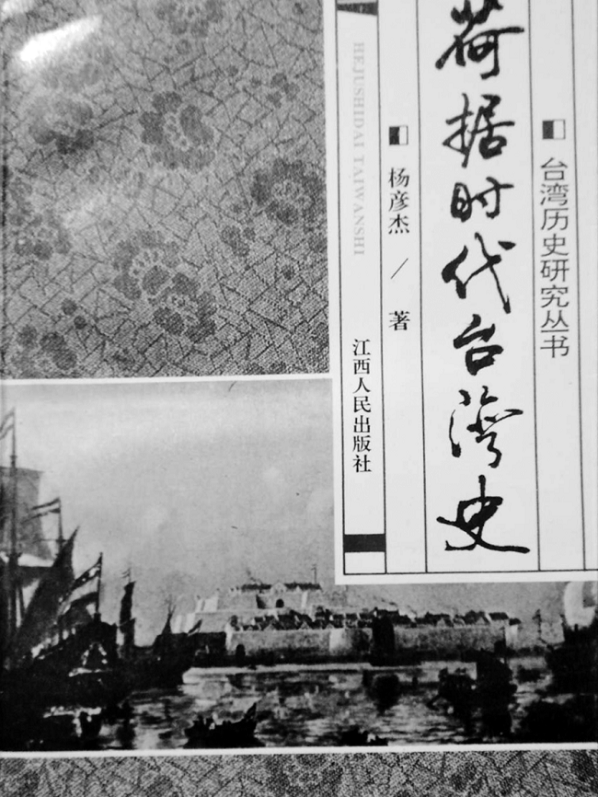 台湾历史研究丛书
荷据时代台湾史
杨彦杰／著
HEJUSHIDAI TAIWANSHI
江西人民出版社